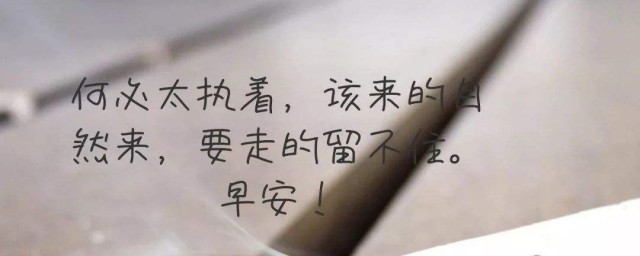 何必太执着，该来的自
然来，要走的留不住。
早安！